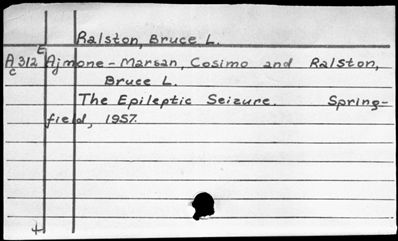 Ralston, Bruce L.
E
A312 Ajmone-Marsan, Cosimo and Ralston,
c Bruce L.
The Epileptic Seizure. Spring-
field, 1957.